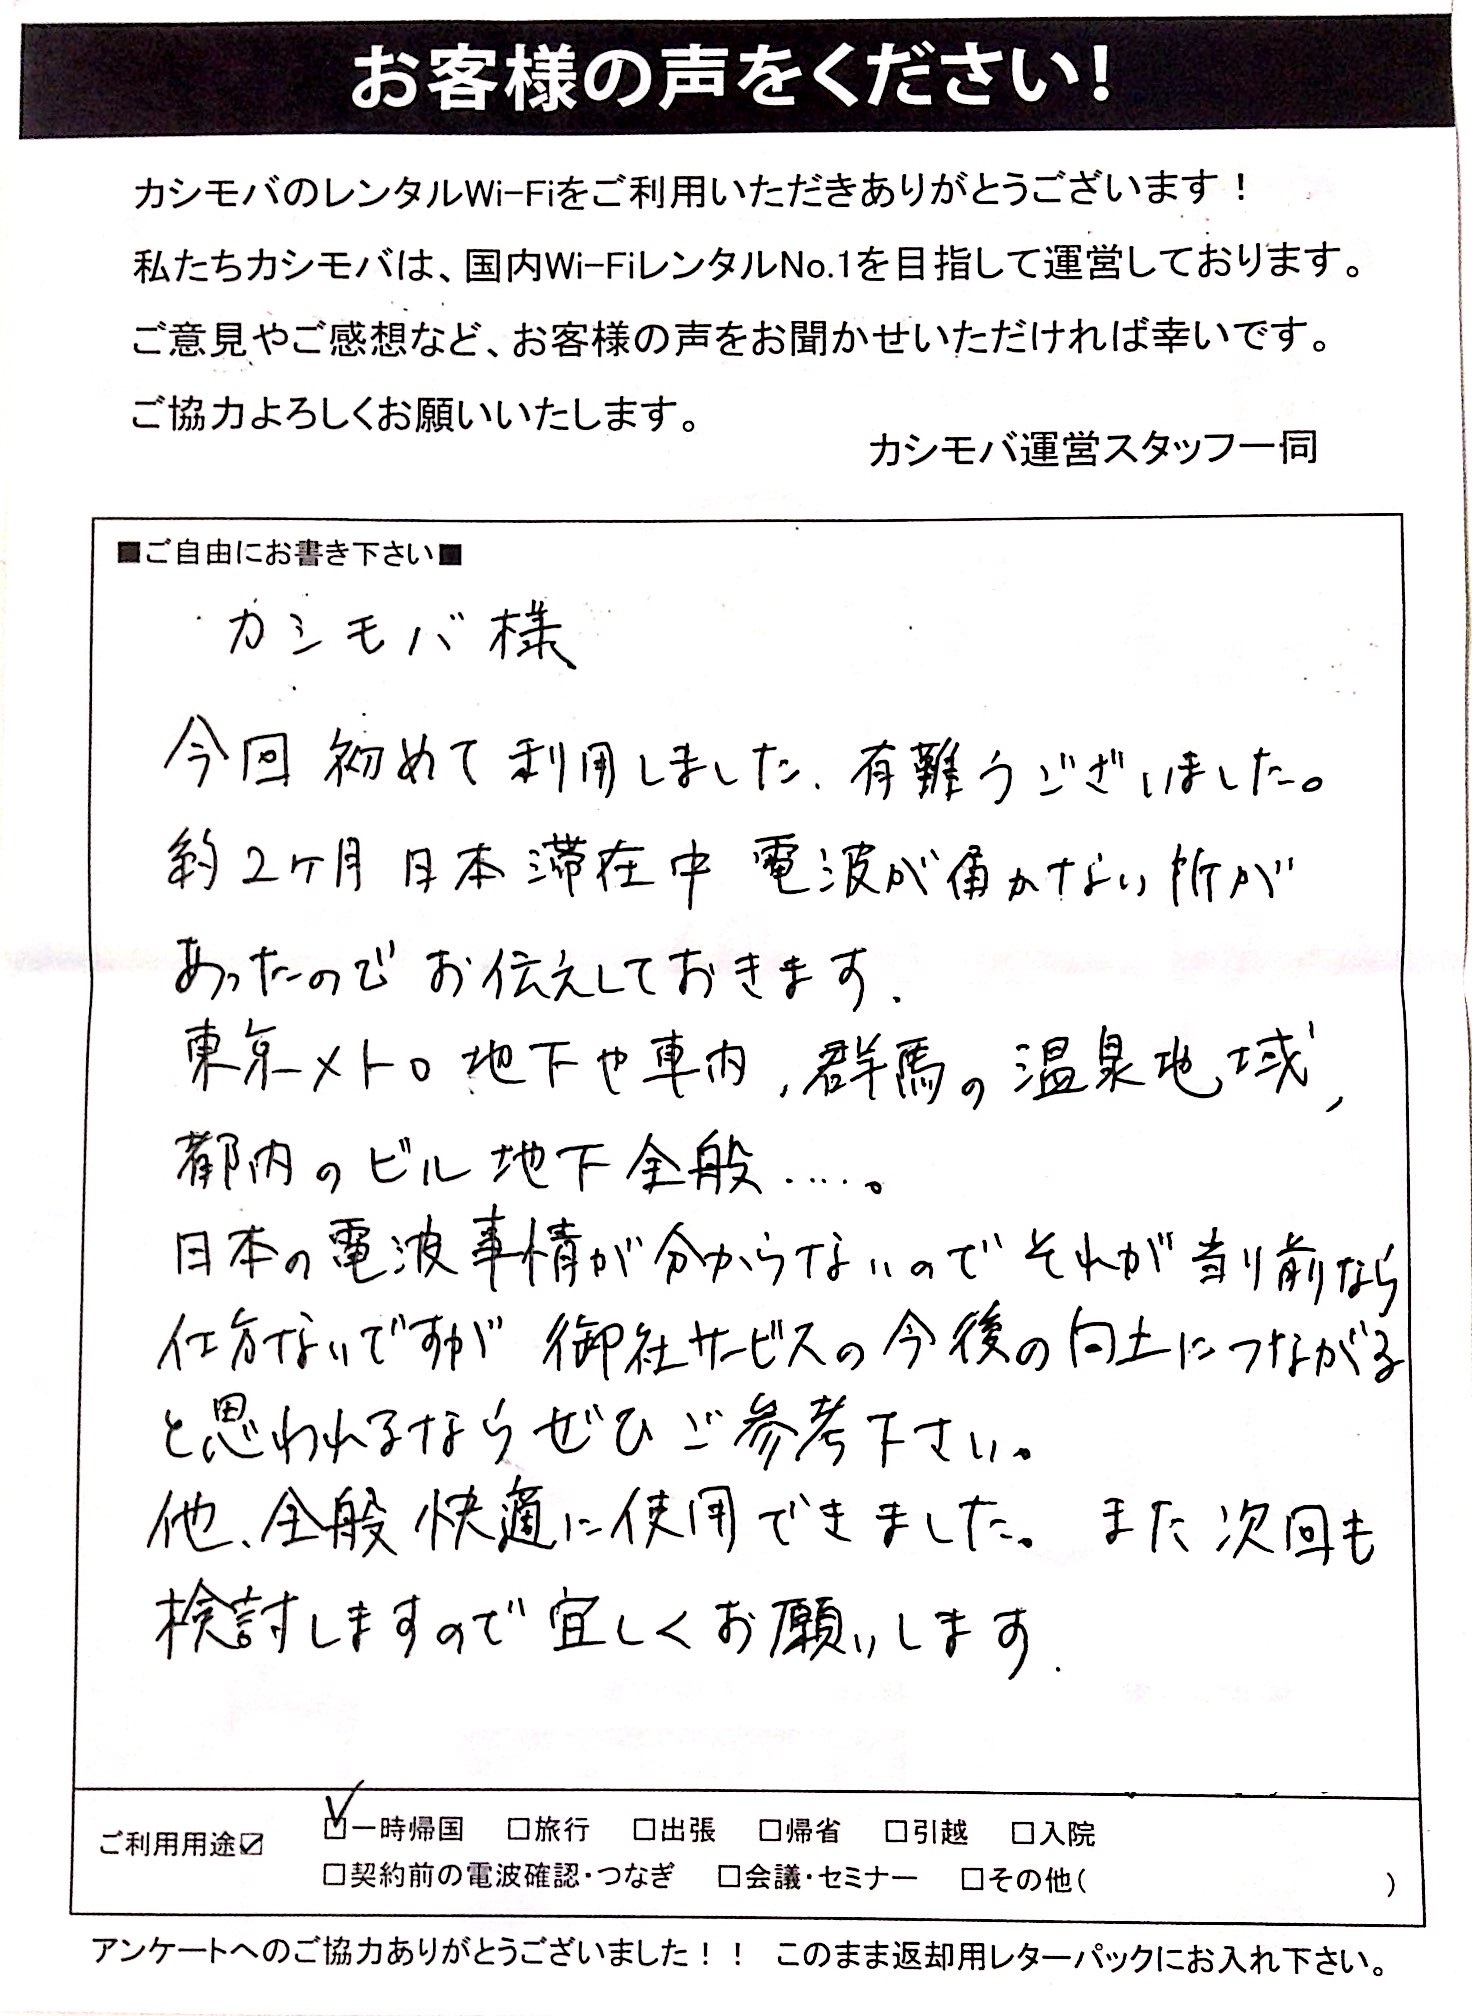 お客様の声をください!
カシモバのレンタルWi-Fiをご利用いただきありがとうございます！
私たちカシモバは、国内Wi-FiレンタルNo.1を目指して運営しております。
ご意見やご感想など、お客様の声をお聞かせいただければ幸いです。
ご協力よろしくお願いいたします。
カシモバ運営スタッフ一同
■ご自由にお書き下さい■
カシモバ様
今回初めて利用しました、有難うございました。
約2ケ月日本滞在中 電波が届かない所が
あったのでお伝えしておきます.
東京メトロ地下や車内、群馬の温泉地域、
都内のビル地下全般.....。
日本の電波事情が分からないのでそれが当り前なら
仕方ないですが 御社サービスの今後の向上につながる
と思われるならぜひご参考下さい。
他、全般快適に使用できました。また次回も
検討しますので宜しくお願いします.
ご利用用途☑ ☑一時帰国 □旅行 □出張 □帰省 □引越 □入院
□契約前の電波確認・つなぎ □会議・セミナー □その他( )
アンケートへのご協力ありがとうございました！！ このまま返却用レターパックにお入れ下さい。